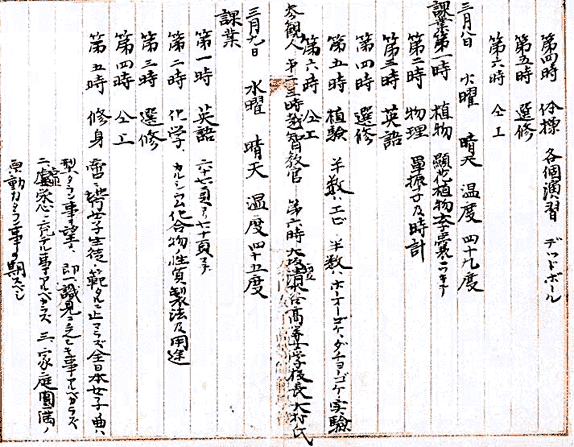 第四時 体操 各個演習 デッドボール
第五時 選修
第六時 仝工
三月八日 火曜 晴天 温度 四十九度
課業第一時 植物 顕花植物
第二時 物理 単振子及時計
第三時 英語
第四時 選修
第五時 植験 半数ハエロ 半数ハホーオーゴケ、ダチョーゴケノ実験
第六時 仝工
参観人 第二三時 教官 第六時大阪 高等女学校長大村氏
三月九日 水曜 晴天 温度 四十五度
課業
第一時 英語 六十七頁ヨリ七十頁マデ
第二時 化学 カルシウム化合物ノ性質、製法及用途
第三時 選修
第四時 仝工
第五時 修身 地方女子生徒ノ範タルニ止マラズ全日本女子ノ典
型タラン事ヲ望ム 即一、識見ニ乏シキ事アルベカラズ
二、虚栄心ニ充テル事アルベカラズ 三、家庭円満ノ
原動力タラン事ヲ期スベシ